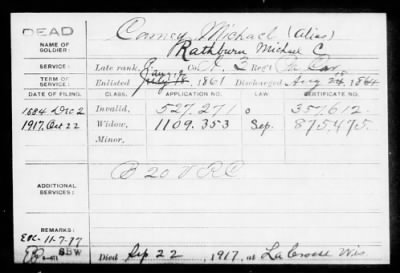 DEAD
NAME OF SOLDIER:
Carney Michael (Alias)
Rathburn Michael C
SERVICE:
Late rank, Co. 3 Reg't Pa Cav
TERM OF SERVICE:
Enlisted 1861 Discharged Aug 24, 1864
DATE OF FILING. CLASS. APPLICATION NO. LAW. CERTIFICATE NO.
1884 Dec 2 Invalid, 527.271 357.612.
1917, Oct 22 Widow, 1109.353 Sep. 875,475.
Minor,
ADDITIONAL SERVICES:
B 20 V R C
REMARKS:
11-7-17
SBW
Died Sep 22, 1917, at La Crosse Wis